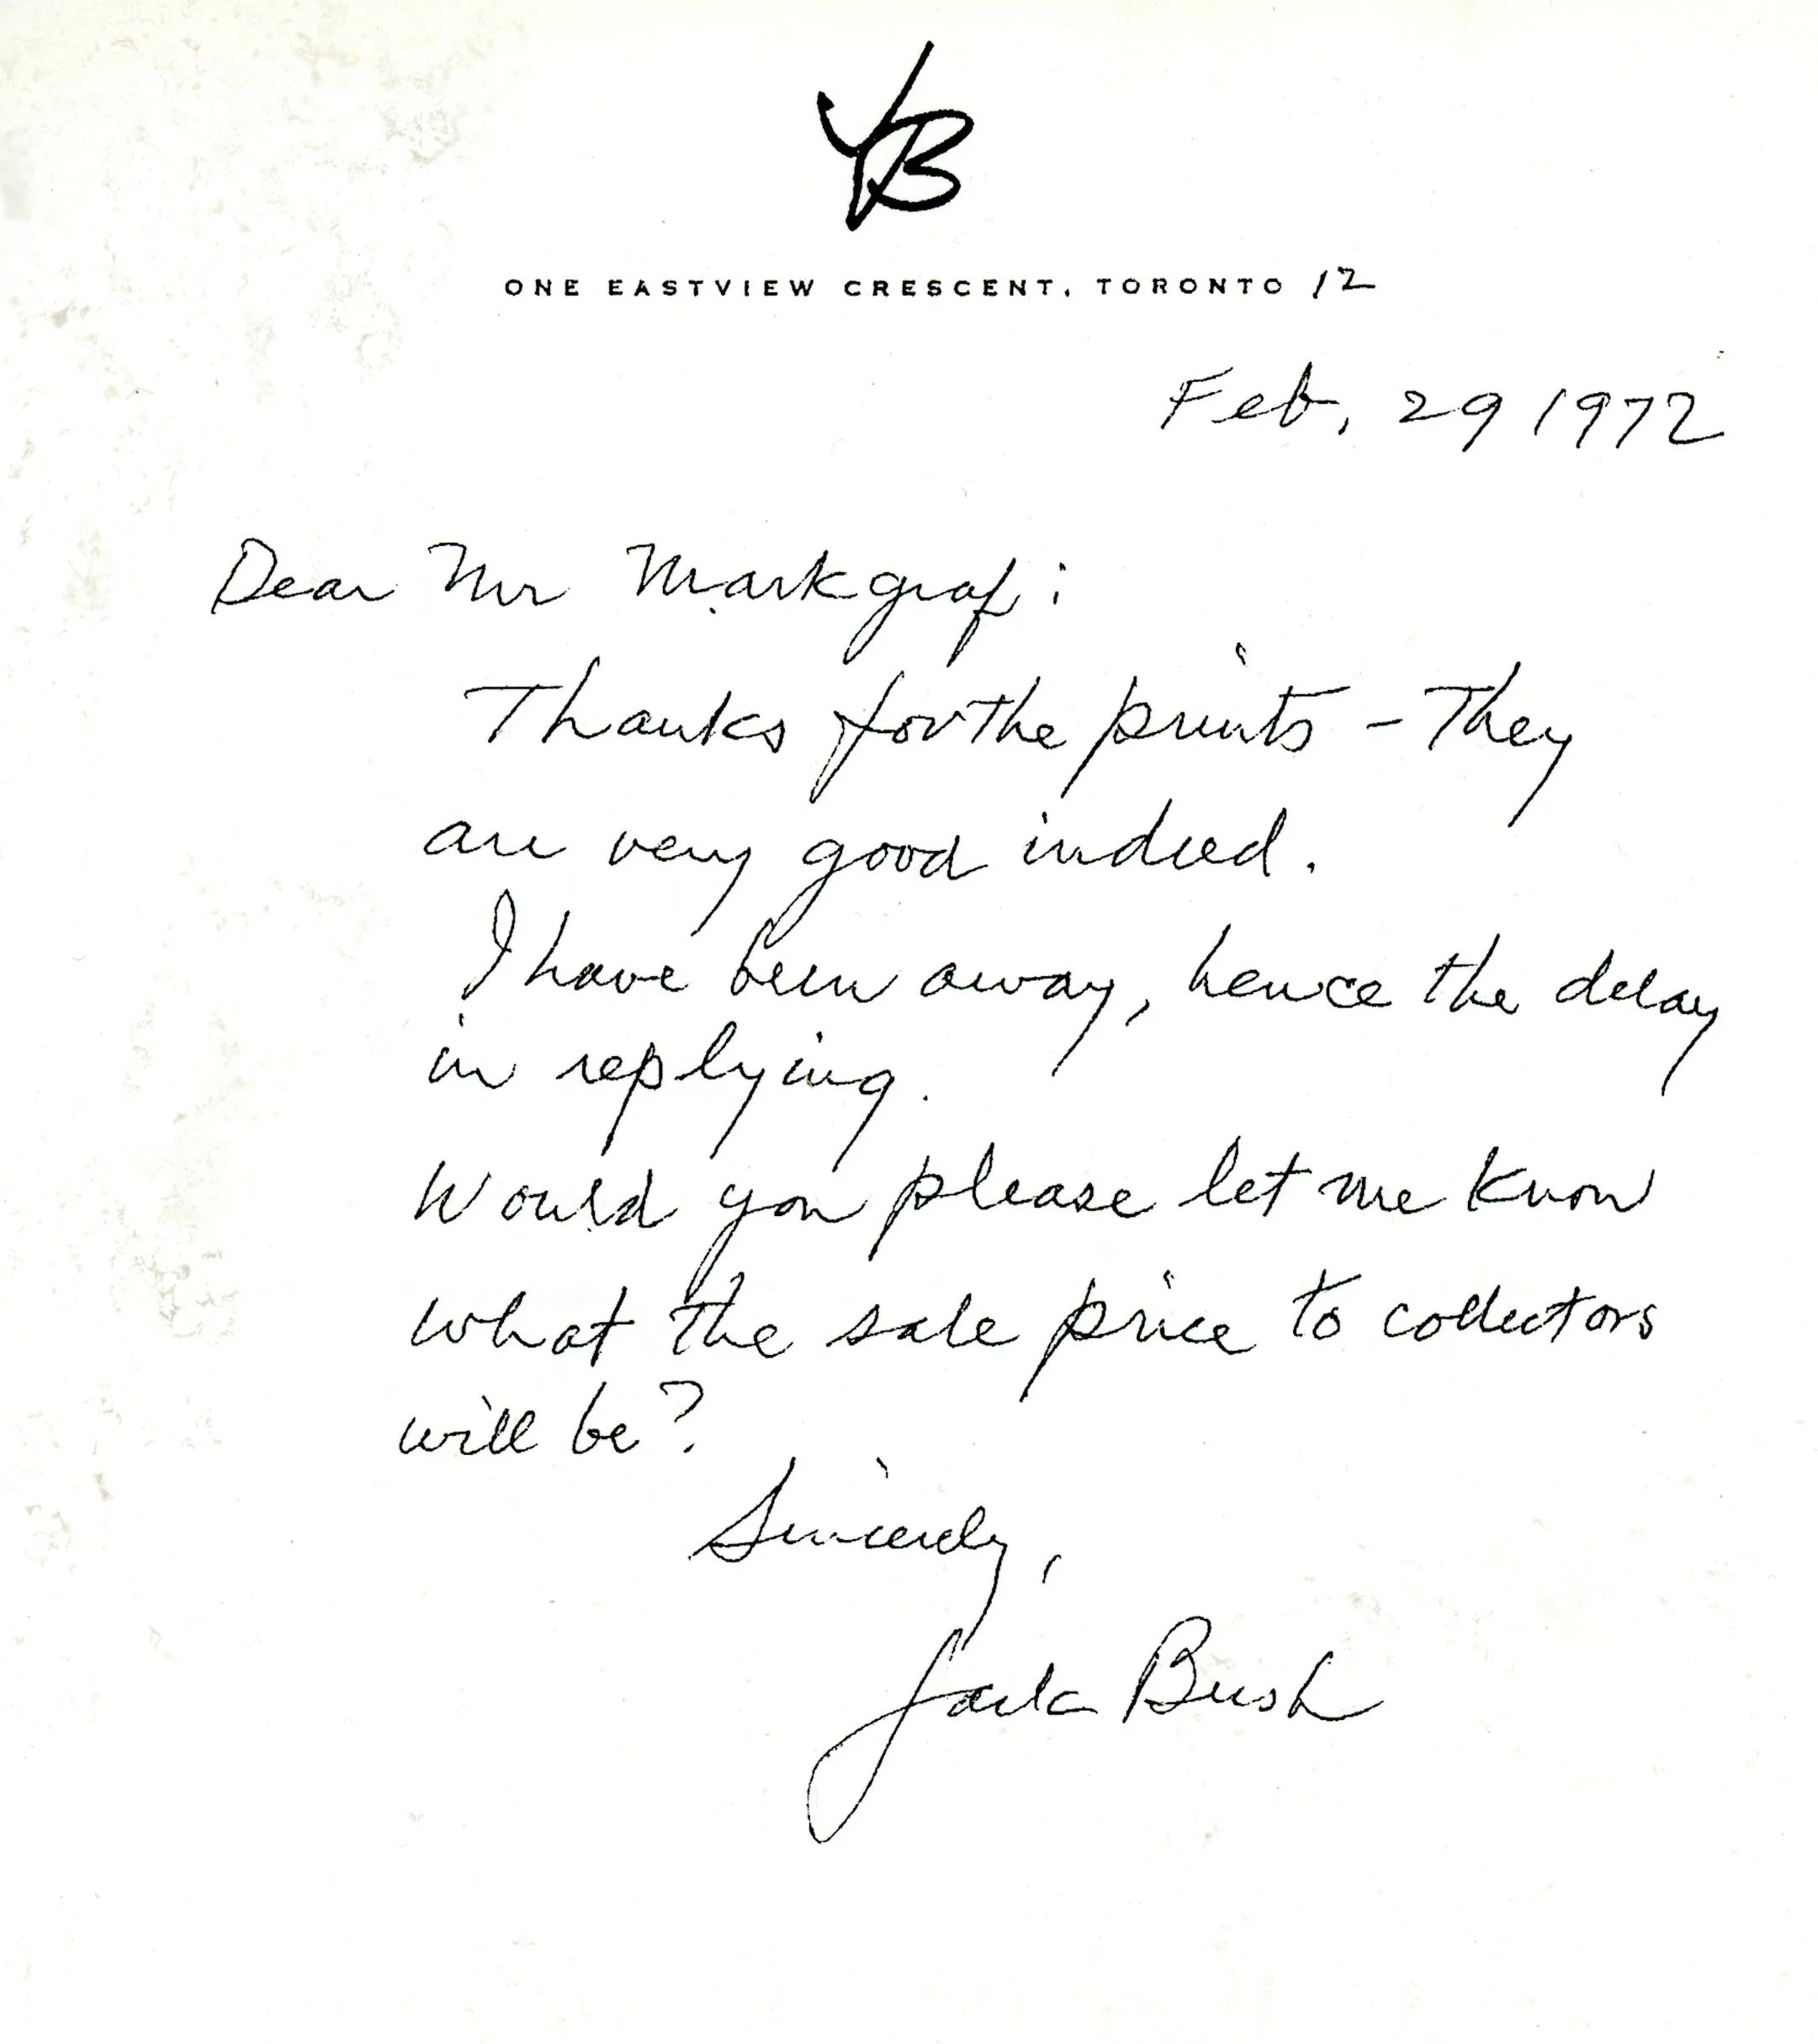 JB
ONE EASTVIEW CRESCENT, TORONTO 12
Feb, 29 1972
Dear Mr Markgraf:
Thanks for the prints - They
are very good indeed.
I have been away, hence the delay
in replying.
Would you please let me know
what the sale price to collectors
will be?
Sincerely,
Jack Bush